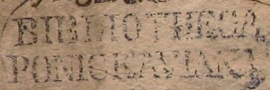 BIBLIOTHECA
PONICKAVIANA